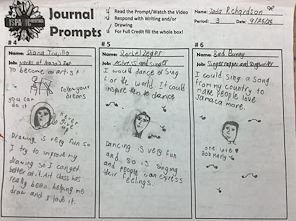 Journal
Prompts
Read the Prompt/Watch the Video
Respond with Writing and/or
Drawing
For Full Credit fill the whole box!
Name: Richardson
Period: 3 Date:
# 4
# 5
# 6
Name: Diana Trujillo
Job:
to become an artist
ART
you can
do it
follow your
dreams
Drawing is very fun so
I try to improve my
drawing so I can get
better at it. Art class has
really been helping me
draw and I love it.
Name: Rachel Zegler
Job: Actress and singer
I would dance or sing
for the world. It could
inspire them to dance
Dancing is very fun
and so is singing
and people can express
their feelings.
Name: Bad Bunny
Job: Singer rapper and songwriter
I could sing a song
from my country to
make people love
Jamaica more.
one love
Bob Marley